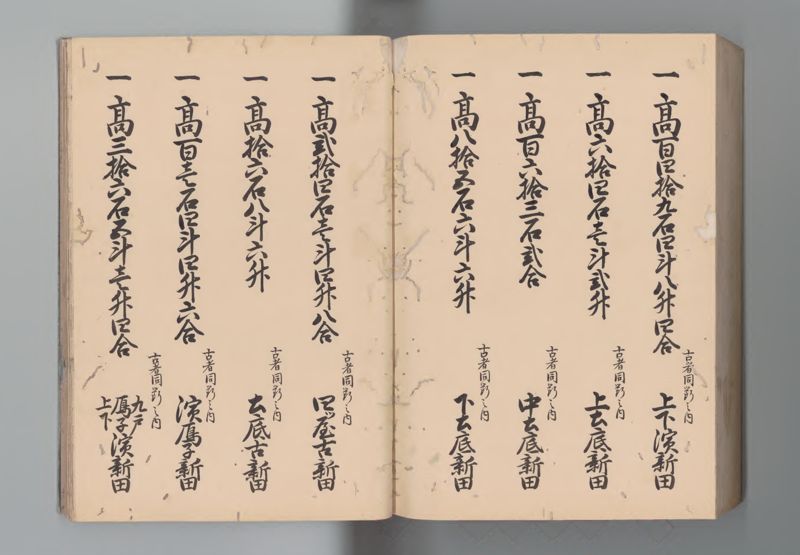 一 高百四拾九石四斗八升四合
古者同郡之内
上下濱新田
一 高六拾四石壱斗弐升
古者同郡之内
上土底新田
一 高百六拾三石弐合
古者同郡之内
中土底新田
一 高八拾五石六斗六升
古者同郡之内
下土底新田
一 高弐拾四石壱斗四升八合
古者同郡之内
四ツ屋古新田
一 高拾六石八斗六升
古者同郡之内
土底古新田
一 高百壱石四斗四升六合
古者同郡之内
濱鴈子新田
一 高三拾六石五斗壱升四合
古者同郡之内
九戸
上下
鴈子濱新田